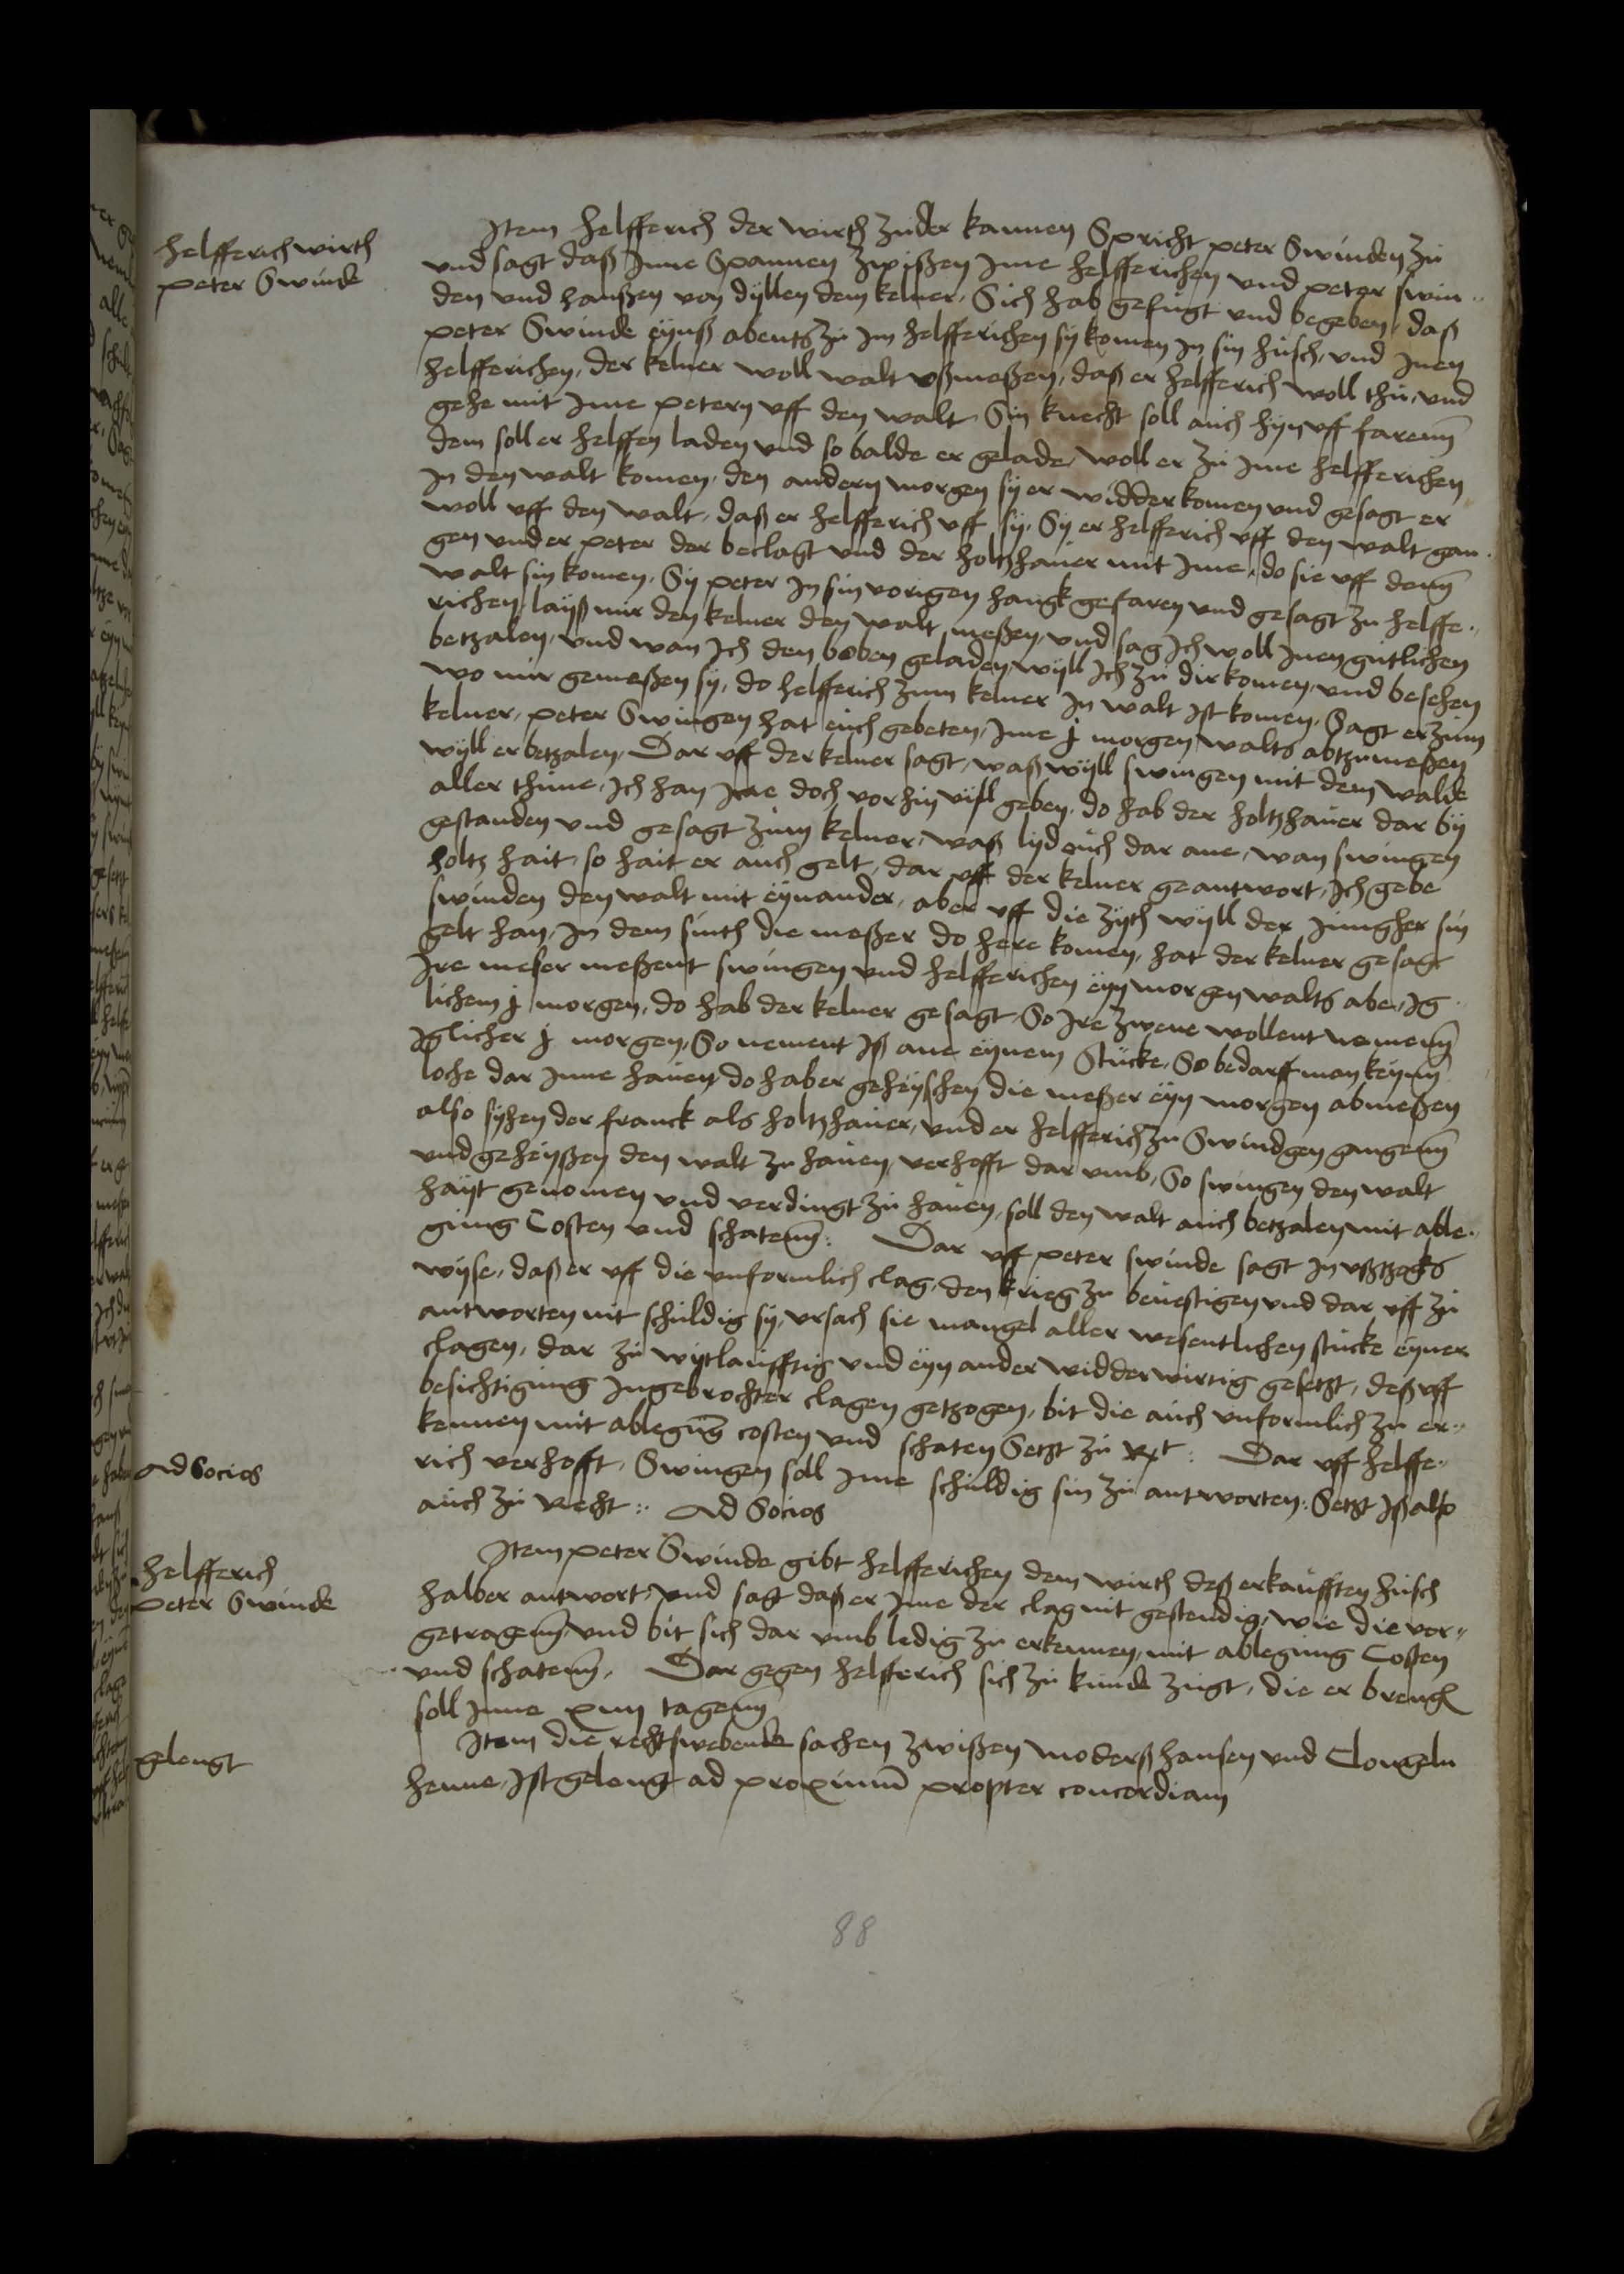 helfferich wirth
peter Swinde
Item helfferich der wirth zu der kannen Spricht peter Swinden zu
und sagt daß Inne Spannen zwißen Ime helfferichen und peter swin„
den und hanßen von dyllen dem kelner, Sich hab gefugt und begeben, daß
peter Swinde eynß abents zu Im helfferichen sy komen In sin husch, und Inen
helfferichen, der kelner woll walt ußmeßen, daß er helfferich woll thu, und
gehe mit Ime petern uff den walt. Sin knecht soll auch hynuff farenn
dem soll er helffen laden und so balde er gelade, woll er zu Ime helfferichen
In den walt komen, den andern morgen sy er widder komen und gesagt er
woll uff den walt, daß er helfferich uff sy, Sy er helfferich uff den walt gan„
gen und er peter der beclagt und der holtzhauer mit Ime, do sie uff denn
walt sin komen. Sy peter In sin vorigen hangk gefaren und gesagt zu helffe„
richen, layß mir den kelner den walt meßen, und sag Ich woll Inen gutlichen
betzalen, und wan Ich den boben geladen, wyll Ich zu dir komen, und besehen
wo mir gemeßen sy, do helfferich zum kelner In walt Ist komen, Sagt er zum
kelner, peter Swingen hat euch gebeten, Ime j morgen walts abtzumeßen
wyll er betzalen. Dar uff der kelner sagt, waß wyll swingen mit dem walde
aller thune, Ich han Ime doch vorhin vijl geben, do hab der holtzhauer dar by
gestanden und gesagt zum kelner, waß lyd euch dar ane, wan swingen
holtz hait, so hait er auch gelt, dar uff der kelner geantwort, Ich gebe
swinden den walt mit eynander, aber uff die zyth wyll der Jungher sin
gelt han, In dem sinth die meßer do here komen, hat der kelner gesagt
Ire meser meßent swingen und helfferichen eyn morgen walts abe, Ig„
lichem j morgen, do hab der kelner gesagt, So Ire zwene wollent nemenn
Iglicher j morgen, So nement Iß ane eynem Stucke, So bedarff man keynn
loche dar Inne hauen, do hab er geheyschen die meßer eyn morgen abmeßen
also syhen der franck als holtzhauer, und er helfferich zu Swindgen gangenn
und geheyßen den walt zu hauen, verhofft dar umb, So swingen den walt
hayt genomen und verdingt zu hauen, soll den walt auch betzalen mit able„
gung Costen und schatenn: Dar uff peter swinde sagt In ußtzogks
wyse, daß er uff die unformlich clag, den krieg zu bevestigen und dar uff zu
antworten nit schuldig sy, ursach sie mangel aller wesentlichen stucke eyner
clagen, dar zu wytleufftig und eyn ander widderwirtig gesetzt, deß uff
besichtigung Ingebrochter clagen getzogen, bit die auch unformlich zu er„
kennen mit ablegung costen und schaten Setzt zu Rt: Dar uff helffe„
rich verhofft, Swingen soll Ime schuldig sin zu antworten: Setzt Iß also
auch zu Recht: Ad Socios
Ad Socios
helfferich
peter Swinde
Item peter Swinde gibt helfferichen dem wirth deß erkaufften husch
halber antwort, und sagt daß er Ime der clag nit gestendig, wie die vor„
getragenn, und bit sich dar umb ledig zu erkennen, mit ablegung Costen
und schatenn, Dar gegen helfferich sich zu kunde zugt, die er brengen
soll Inne xiiij tagenn
gelengt
Item die rechtswebende sachen zwißen moderß hansen und Clongeln
henne, Ist gelengt ad proximum propter concordiam
88